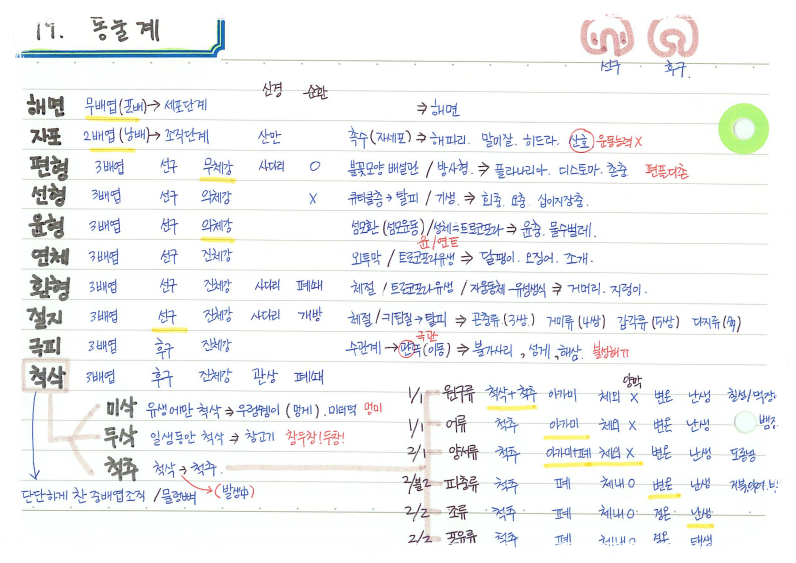 17. 동물계
선구 후구
신경 순환
해면 무배엽(포배)→ 세포단계 ⇒ 해면
자포 2배엽(낭배)→ 조직단계 산만 촉수(자세포)⇒ 해파리. 말미잘. 히드라. 산호 운동능력X
편형 3배엽 선구 무체강 사다리 O 불꽃모양 배설관 / 방사형. ⇒ 플라나리아. 디스토마. 촌충 편플디촌
선형 3배엽 선구 의체강 X 큐티클층→탈피 / 기생. ⇒ 회충. 요충. 십이지장충.
윤형 3배엽 선구 의체강 섬모환(섬모운동)/성체≒트로코포라⇒ 윤충. 물수벌레.
윤/연트
연체 3배엽 선구 진체강 외투막 / 트로코포라유생 ⇒ 달팽이. 오징어. 조개.
환형 3배엽 선구 진체강 사다리 폐쇄 체절 / 트로코포라유생 / 자웅동체-유성생식 ⇒ 거머리. 지렁이.
절지 3배엽 선구 진체강 사다리 개방 체절/키틴질→탈피 ⇒ 곤충류(3쌍). 거미류(4쌍) 갑각류(5쌍) 다지류(多)
극관
극피 3배엽 후구 진체강 수관계→관족(이동) ⇒ 불가사리, 성게, 해삼. 불성해ㅠ
척삭 3배엽 후구 진체강 관상 폐쇄
양막
1/1 원구류 척삭+척추 아가미 체외 X 변온 난생 칠성/먹장
미삭 유생에만 척삭⇒우렁쉥이(멍게). 미더덕 멍미
1/1 어류 척추 아가미 체외 X 변온 난생
두삭 일생동안 척삭⇒창고기 창두창!두창!
2/1 양서류 척추 아가미+폐 체외 X 변온 난생
척추 척삭→척추.
2/불2 파충류 척추 폐 체내 O 변온 난생
단단하게 찬 중배엽조직 / 물렁뼈 (발생中)
2/2 조류 척추 폐 체내 O 정온 난생
2/2 포유류 척추 폐 체내 O 정온 태생